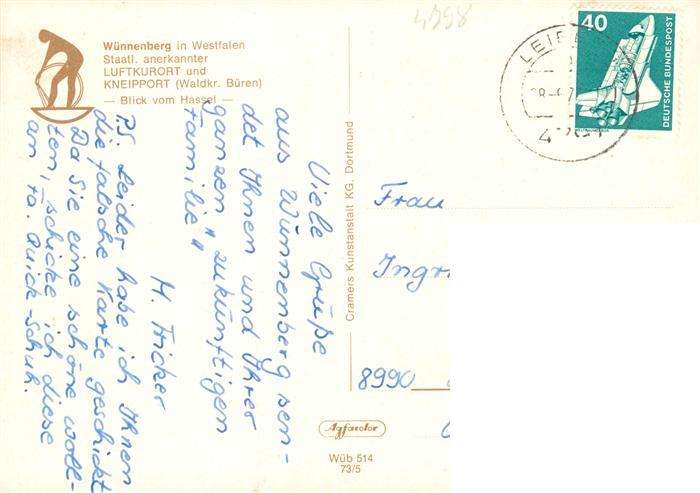 4798
Wünnenberg in Westfalen
Staatl. anerkannter
LUFTKURORT und
KNEIPPORT (Waldkr. Büren)
— Blick vom Hassel —
Viele Grüße
aus Wünnenberg sen-
det Ihnen und Ihrer
ganzen "zukünftigen
Familie"
H. Fricker
P.S. Leider habe ich Ihnen
die falsche Karte geschickt
Da Sie eine schöne woll-
ten, schicke ich diese
an Fa. Quick-Schuh.
Cramers Kunstanstalt KG. Dortmund
Agfacolor
Wüb 514
73/5
40
DEUTSCHE BUNDESPOST
LEIB
Frau
Ingr
8990